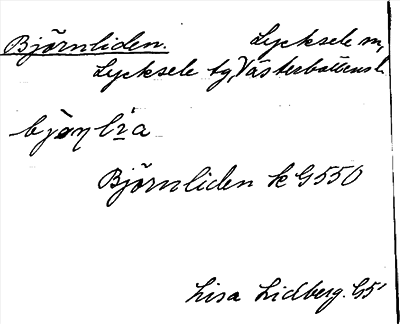 Björnliden. Lycksele m,
Lycksele tg, Västerbottens l.
Björnliden k G550
Lisa Lidberg. G5'